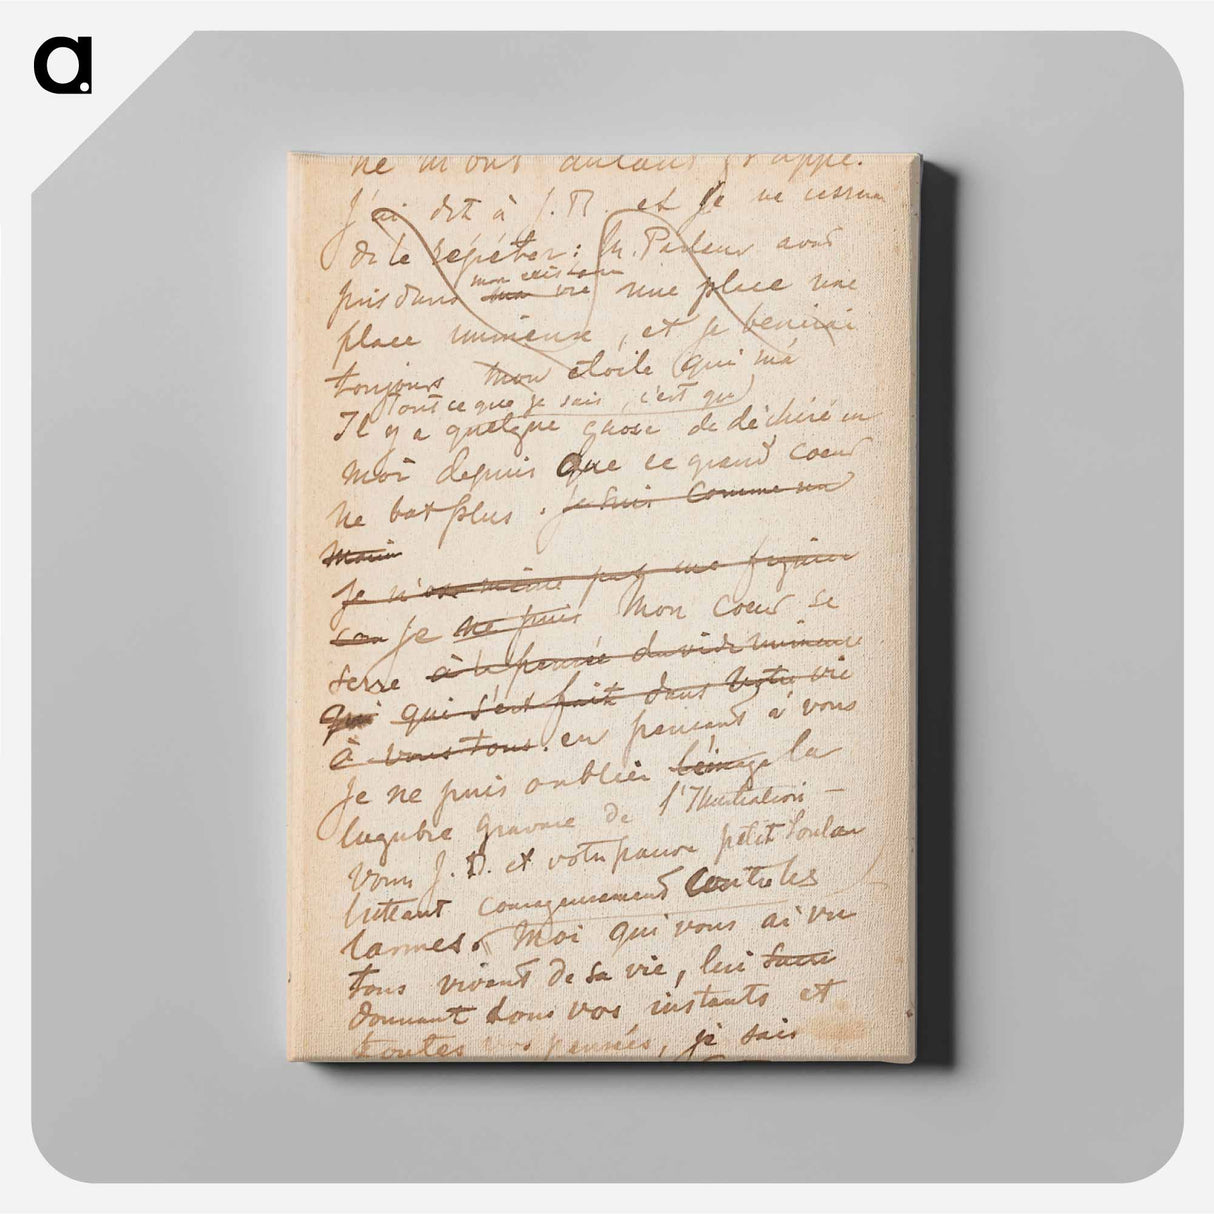 a.
ne m'ont autant frappé.
J'ai dit à J.B et je ne cesserai
de le répéter: M. Pasteur avait
mon existence
pris dans ma vie une place une
place immense, et je bénirai
toujours mon étoile qui m'a
Tout ce que je sais, c'est que
Il y a quelque chose de déchiré en
moi depuis que ce grand coeur
ne bat plus. je suis comme un
Je n'ose même pas me figurer
Je ne puis Mon coeur se
serre à la pensée du vide immense
qui qui s'est fait dans votre vie
à vous tous. en pensant à vous
Je ne puis oublier l'image la
lugubre gravure de l'Illustration —
vous J.B. et votre pauvre petit
luttant courageusement contre les
larmes. Moi qui vous ai vu
tous vivant de sa vie, lui
donnant tous vos instants et
toutes vos pensées, je sais